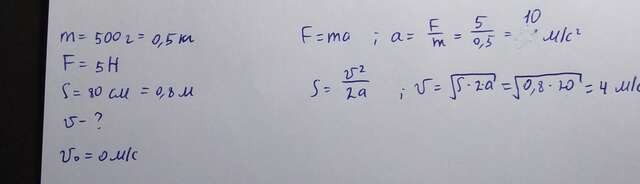 m = 500 г = 0,5 кг
F = 5 Н
S = 80 см = 0,8 м
v - ?
v₀ = 0 м/с
F = ma ; a = F/m = 5/0,5 = 10 м/с²
S = v²/2a ; v = √(S·2a) = √(0,8·20) = 4 м/с